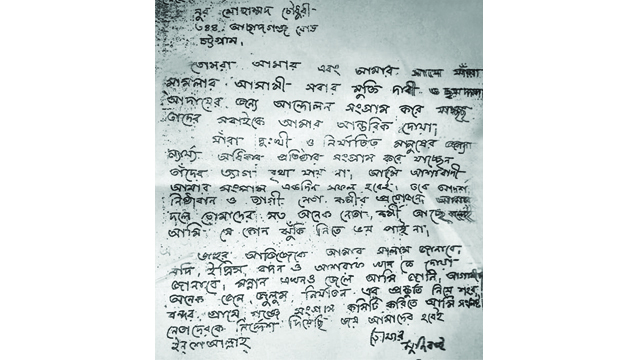 নুর মোহাম্মদ চৌধুরী
৩৪৪ আছাদগঞ্জ রোড
চট্টগ্রাম।
তোমরা আমার এবং আমার সাথে যাঁরা
মামলার আসামী সবার মুক্তি দাবী ও
আদায়ের জন্যে আন্দোলন সংগ্রাম করে যাচ্ছ
তাদের সবাইকে আমার আন্তরিক দোয়া,
যাঁরা দুঃখী ও নির্যাতিত মানুষের
ন্যায্য অধিকার প্রতিষ্ঠার সংগ্রাম করে যাচ্ছেন
তাঁদের ত্যাগ বৃথা যায় না, আমি আশাবাদী
আমার সংগ্রাম একদিন সফল হবেই, তবে
নিষ্ঠাবান ও ত্যাগী নেতা কর্মীর প্রয়োজন আমার
দলে তোমাদের মত অনেক নেতা কর্মী আছে বলেই
আমি যে কোন ঝুঁকি নিতে ভয় পাই না,
জহুর আজিজকে আমার সালাম জানাবে,
মানি, ইদ্রিস, ও আশরাফ খান কে দোয়া
জানাবে, মন্নান এখনও জেলে আমি জানি,
অনেক জেল জুলুম নির্যাতন এর প্রস্তুতি নিয়ে শহর
বন্দর গ্রামে গঞ্জে সংগ্রাম কমিটি করিতে আমি সকল
নেতাদেরকে নির্দেশ দিয়েছি জয় আমাদের হবেই
ইনশেআল্লাহ্
তোমার
মুজিব ভাই